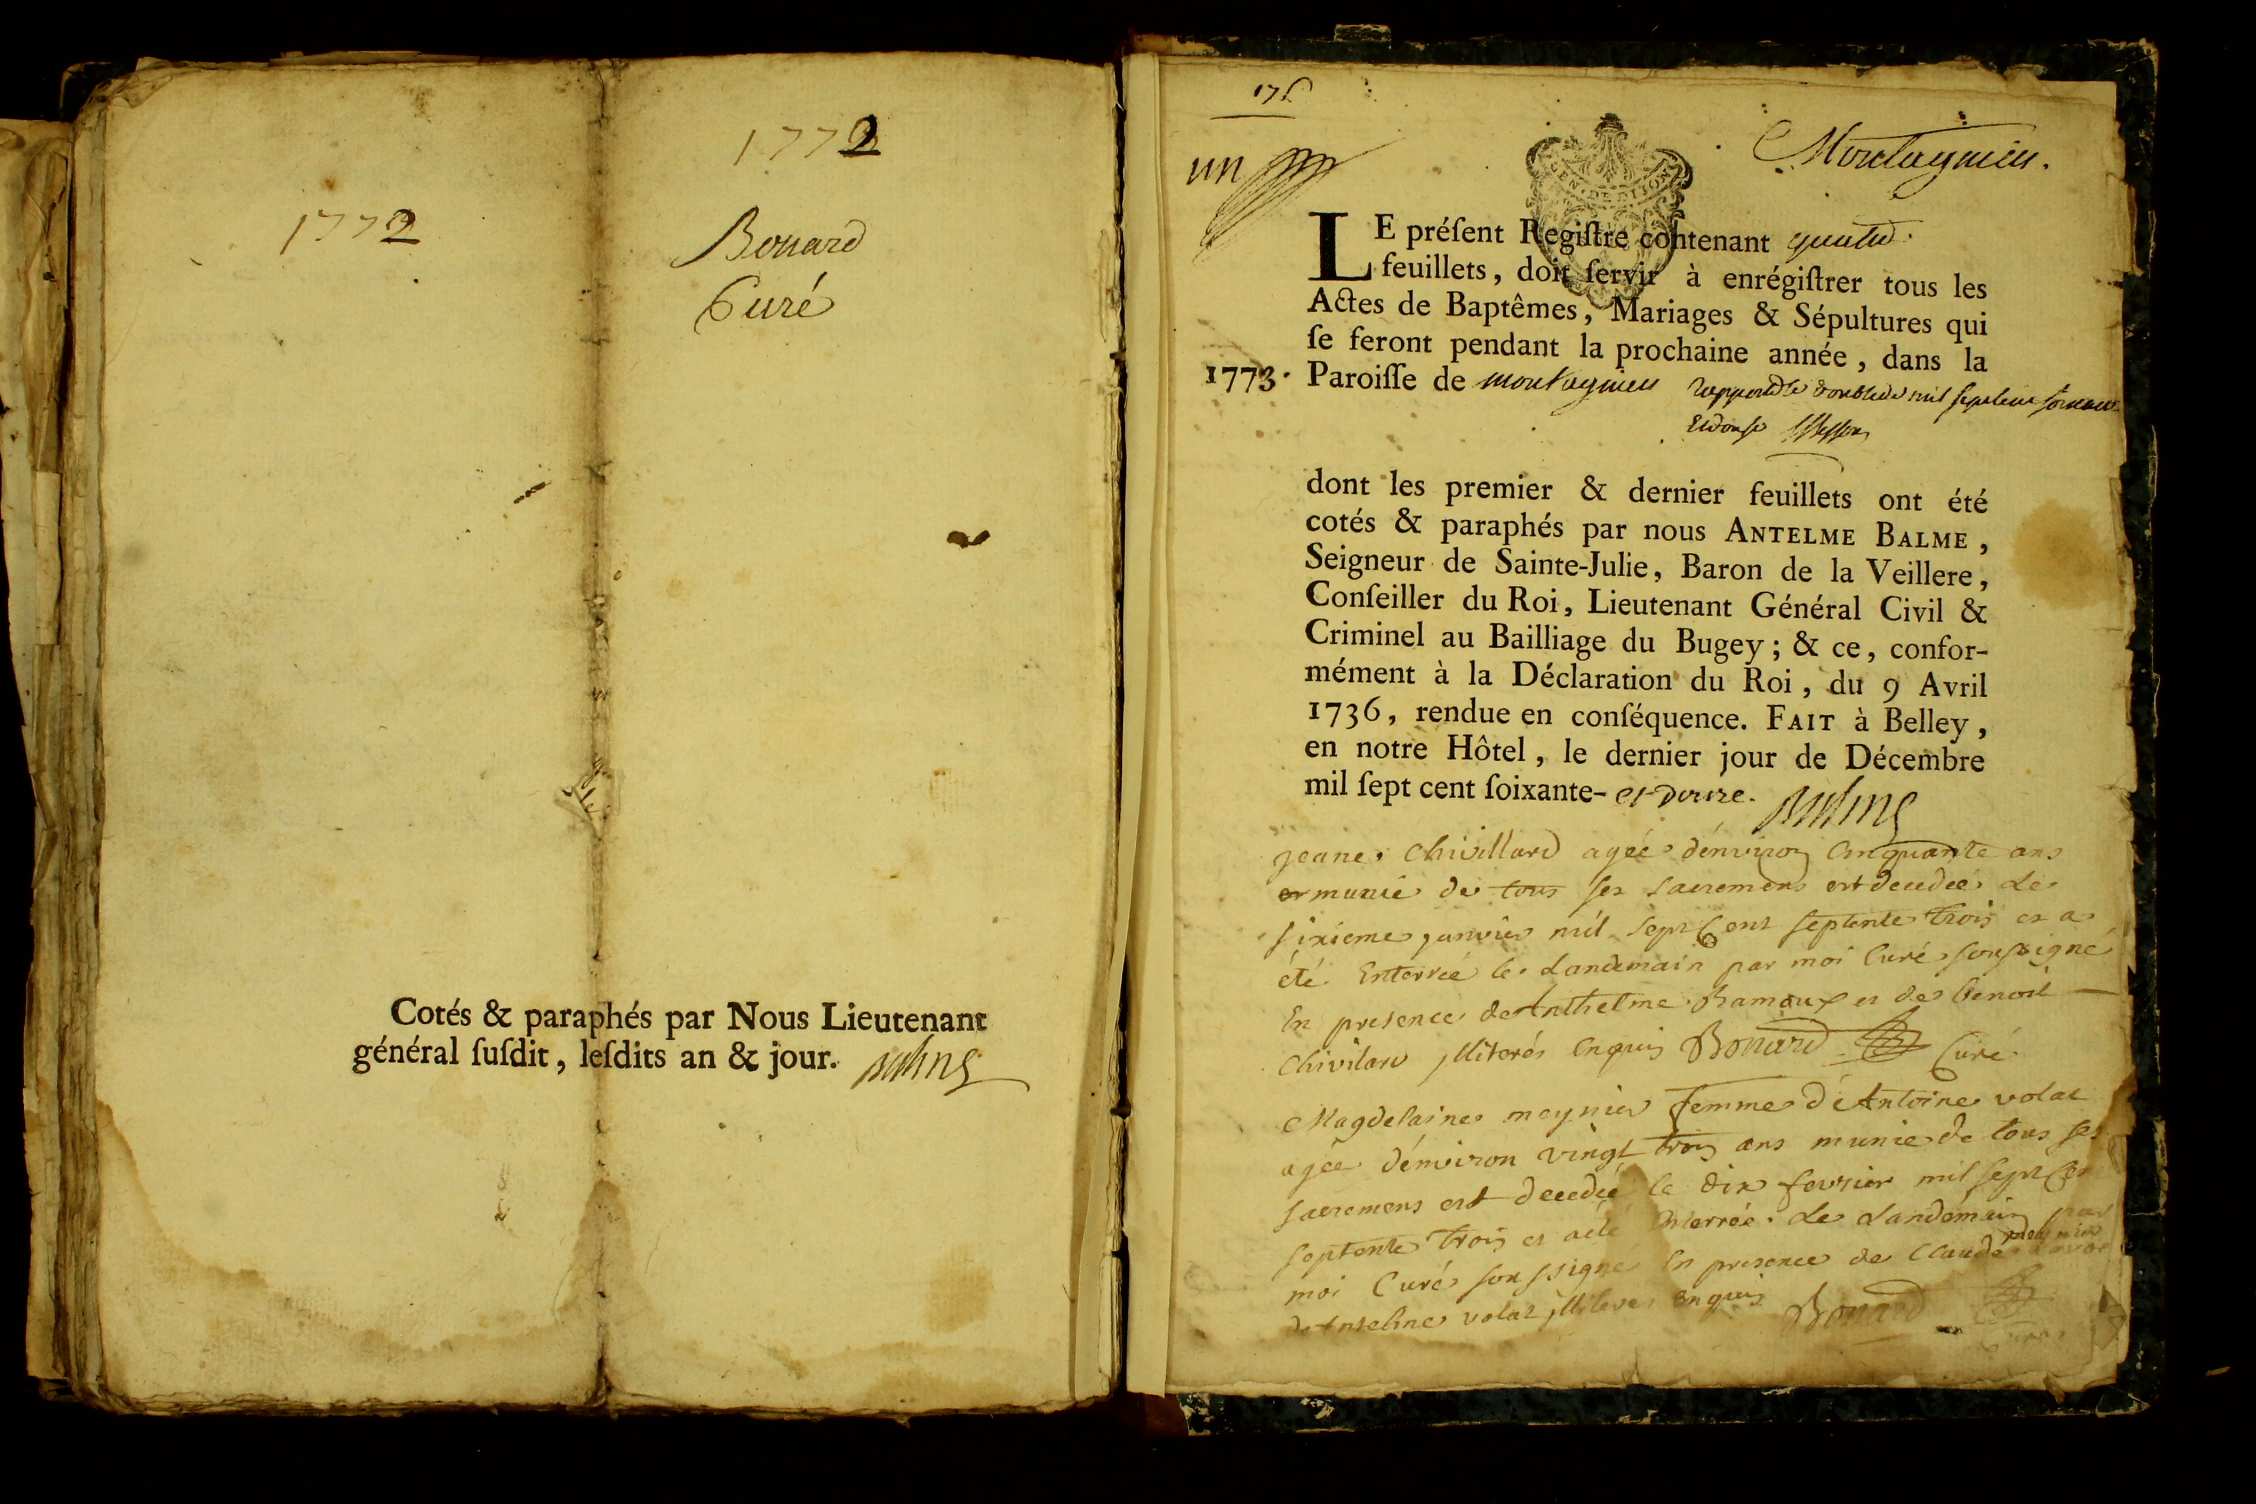 1772
1772
Bouard
Curé
Cotés & paraphés par Nous Lieutenant
général ſuſdit, leſdits an & jour.
un
Montagnieu.
GEN. DE DIJON
LE préſent Regiſtre contenant quatre
feuillets, doit ſervir à enrégiſtrer tous les
Actes de Baptêmes, Mariages & Sépultures qui
ſe feront pendant la prochaine année, dans la
1773. Paroiſſe de montagnieu
dont les premier & dernier feuillets ont été
cotés & paraphés par nous ANTELME BALME,
Seigneur de Sainte-Julie, Baron de la Veillere,
Conſeiller du Roi, Lieutenant Général Civil &
Criminel au Bailliage du Bugey; & ce, confor-
mément à la Déclaration du Roi, du 9 Avril
1736, rendue en conſéquence. FAIT à Belley,
en notre Hôtel, le dernier jour de Décembre
mil ſept cent ſoixante- et douze. Balme
jeane Chivillard agée d'énviron Cinquante ans
munie de tous ses sacremens est decedée Le
sixieme janvier mil sept Cent septente trois et a
été Enterrée le Landemain par moi Curé soussigné
En presence de Anthelme Ramoux et de Benoit
Chivilard illiterés Enquis Bouard Curé
Magdelaine meynier femme d'Antoine volat
agée d'énviron vingt trois ans munie de tous ses
sacremens est decedée le dix fevrier mil sept Cen
septente trois et a été Enterrée Le Landemain par
moi Curé soussigné En presence de Claude meynier
d'Anselme volat illiterés Enquis Bouard
Curé